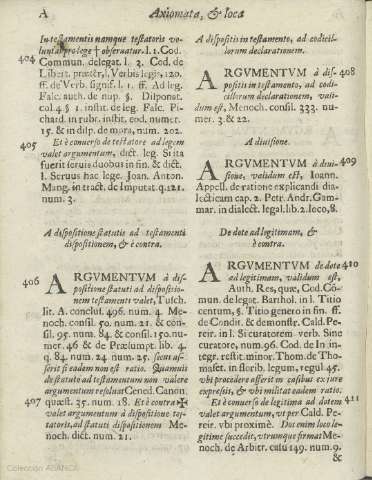 A
Axiomata, & loca
In testamentis namque testatoris vo-
luntas pro lege † obseruatur. l. 1. Cod.
404
Commun. delegat. l. 3. Cod. de
Libert. præter. l. Verbis legis, 120.
ff. de Verb. signif. l. 1. ff. Ad leg.
Falc. auth. de nup. §. Disponat.
col. 4. § 1. instit. de leg. Falc. Pi-
chard. in rubr. instit. cod. numer.
15. & in disp. de mora, num. 202.
405
Et è conuerso de testatore ad legem
valet argumentum, dict. leg. Si ita
fuerit seruis duobus in fin. & dict.
l. Seruus hac lege. Ioan. Anton.
Mang. in tract. de Imputat. q. 121.
num. 3.
A dispositione statutis ad testamenti
dispositionem, & è contra.
406
ARGVMENTVM à dis-
positione statuti ad dispositio-
nem testamenti valet, Tusch.
lit. A. conclus. 496. num. 4. Me-
noch. consil. 50. num. 21. & con-
sil. 95. num. 84. & consil. 150. nu-
mer. 46 & de Præsumpt. lib. 4.
q. 84. num. 24. num. 25. secus as-
serit si eadem non est ratio. Quamuis
de statuto ad testamentum non valere
argumentum resoluat Cened. Canon.
407
quæst. 35. num. 18. Et è contra
valet argumentum à dispositione tes-
tatoris, ad statuti dispositionem Me-
noch. dict. num. 21.
A dispositis in testamento, ad codicil-
lorum declarationem.
ARGVMENTVM à dis-
408
positis in testamento, ad codi-
cillorum declarationem, vali-
dum est, Menoch. consil. 333. nu-
mer. 3. & 22.
A diuisione.
ARGVMENTVM à diui-
409
sione, validum est, Ioann.
Appell. de ratione explicandi dia-
lecticam cap. 2. Petr. Andr. Gam-
mar. in dialect. legal. lib. 2. loco, 8.
De dote ad legitimam, &
è contra.
ARGVMENTVM de dote
410
ad legitimam, validum est,
Auth. Res, quæ, Cod. Cõ-
mun. de legat. Barthol. in l. Titio
centum, §. Titio genero in fin. ff.
de Condit. & demonstr. Cald. Pe-
reir. in l. Si curatorem verb. Sine
curatore, num. 96. Cod. de In in-
tegr. restit. minor. Thom. de Tho-
maset. in florib. legum, regul 45.
vbi procedere asserit in casibus exjure
expressis, & vbi militat eadem ratio.
Et è conuerso de legitima ad dotem
411
valet argumentum, vt per Cald. Pe-
reir. vbi proximè. Dos enim loco le-
gitimæ succedit, vtrumque firmat Me-
noch. de Arbitr. casu 149. num. 9.
&
Colección ABANCA